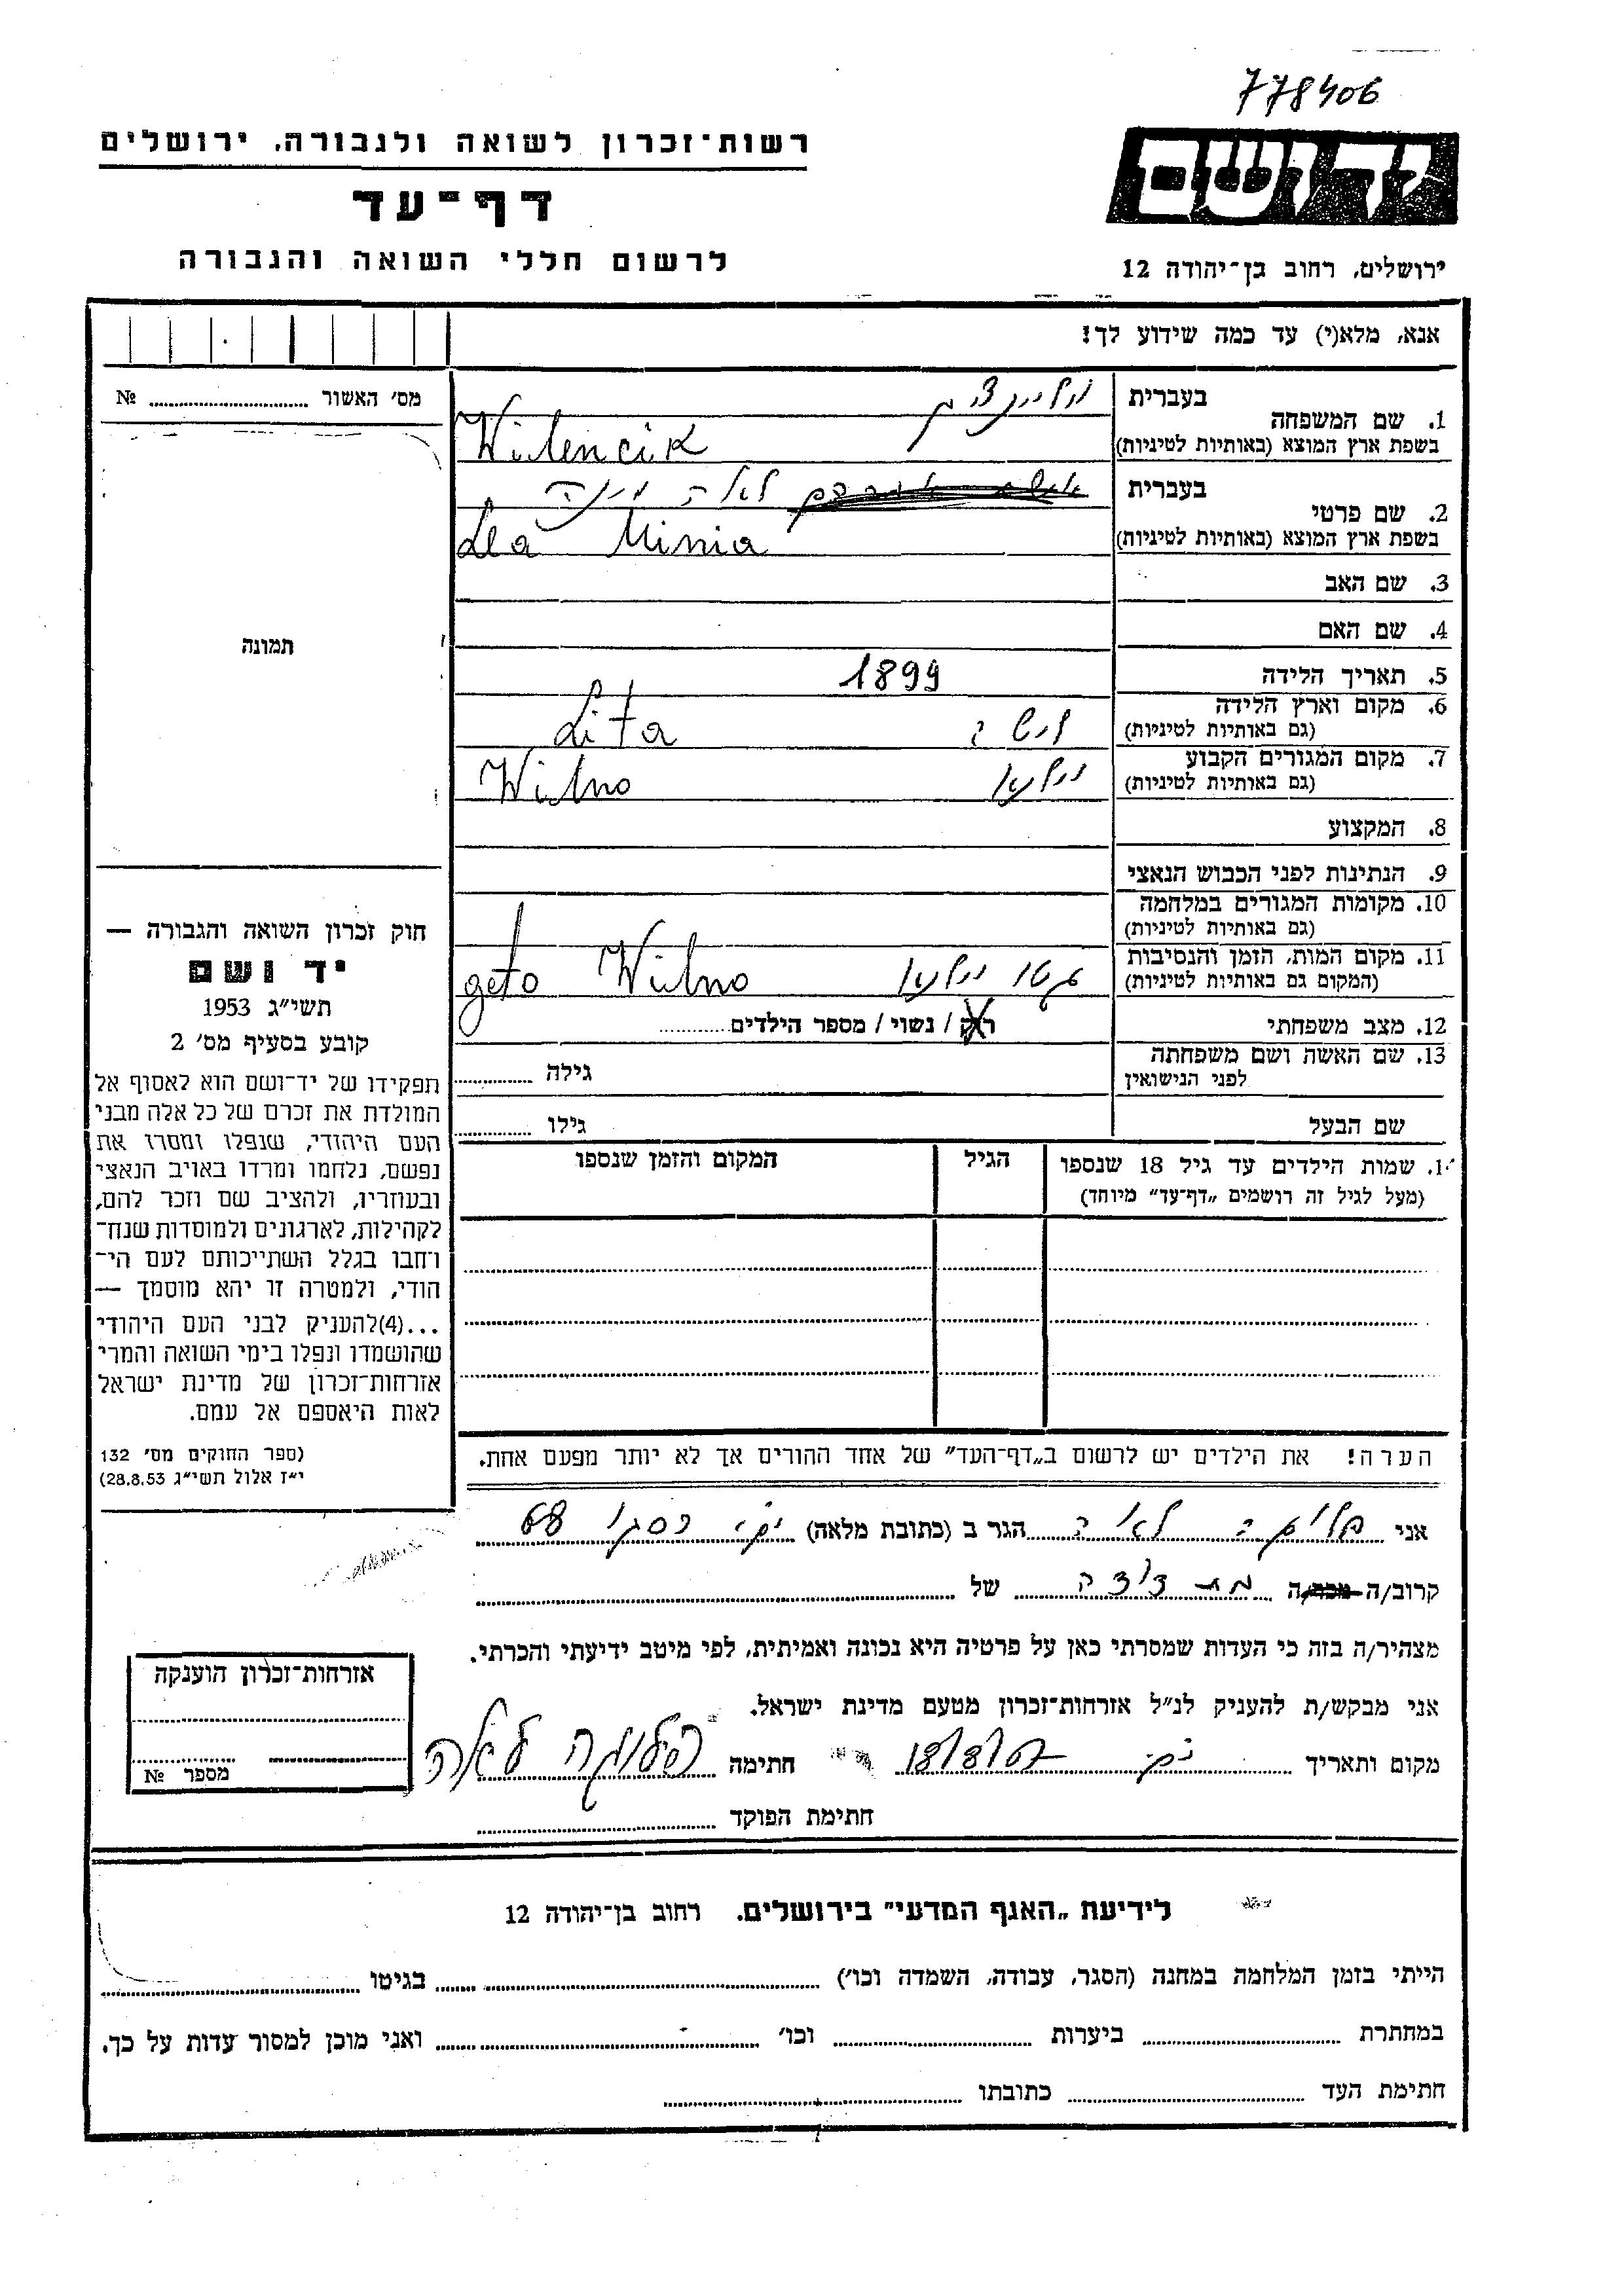 778406
רשות־זכרון לשואה ולגבורה, ירושלים
דף־עד
לרשום חללי השואה והגבורה
יד ושם
ירושלים, רחוב בן־יהודה 12
אנא, מלא(י) עד כמה שידוע לך!
מס׳ האשור № ........
1. שם המשפחה
בעברית
בשפת ארץ המוצא (באותיות לטיניות) Wilencik
2. שם פרטי
בעברית לאה מיניה
בשפת ארץ המוצא (באותיות לטיניות) Lea Minia
3. שם האב
4. שם האם
5. תאריך הלידה 1899
6. מקום וארץ הלידה
(גם באותיות לטיניות) ליטה Lita
7. מקום המגורים הקבוע
(גם באותיות לטיניות) וילנו Wilno
8. המקצוע
9. הנתינות לפני הכבוש הנאצי
10. מקומות המגורים במלחמה
(גם באותיות לטיניות)
11. מקום המות, הזמן והנסיבות
(המקום גם באותיות לטיניות) גטו וילנו geto Wilno
12. מצב משפחתי רוק / נשוי / מספר הילדים ........
13. שם האשה ושם משפחתה
לפני הנישואין גילה ........
שם הבעל גילו ........
תמונה
חוק זכרון השואה והגבורה —
יד ושם
תשי״ג 1953
קובע בסעיף מס׳ 2
תפקידו של יד־ושם הוא לאסוף אל
המולדת את זכרם של כל אלה מבני
העם היהודי, שנפלו ומסרו את
נפשם, נלחמו ומרדו באויב הנאצי
ובעוזריו, ולהציב שם וזכר להם,
לקהילות, לארגונים ולמוסדות שנח־
רחבו בגלל השתייכותם לעם הי־
הודי, ולמטרה זו יהא מוסמך —
...(4)להעניק לבני העם היהודי
שהושמדו ונפלו בימי השואה והמרי
אזרחות־זכרון של מדינת ישראל
לאות היאספם אל עמם.
(ספר החוקים מס׳ 132
י״ז אלול תשי״ג 28.8.53)
1. שמות הילדים עד גיל 18 שנספו
(מעל לגיל זה רושמים „דף־עד״ מיוחד)
הגיל
המקום והזמן שנספו
הערה! את הילדים יש לרשום ב„דף־העד״ של אחד ההורים אך לא יותר מפעם אחת.
אני לאה הגר ב (כתובת מלאה) 68
קרוב/ה מכר/ה בת דודה של ........
מצהיר/ה בזה כי העדות שמסרתי כאן על פרטיה היא נכונה ואמיתית, לפי מיטב ידיעתי והכרתי.
אני מבקש/ת להעניק לנ״ל אזרחות־זכרון מטעם מדינת ישראל.
מקום ותאריך חתימה לאה
חתימת הפוקד ........
אזרחות־זכרון הוענקה
מספר №
לידיעת „האגף המדעי״ בירושלים, רחוב בן־יהודה 12
הייתי בזמן המלחמה במחנה (הסגר, עבודה, השמדה וכו׳) ........ בגיטו ........
במחתרת ........ ביערות ........ וכו׳ ........ ואני מוכן למסור עדות על כך.
חתימת העד ........ כתובתו ........